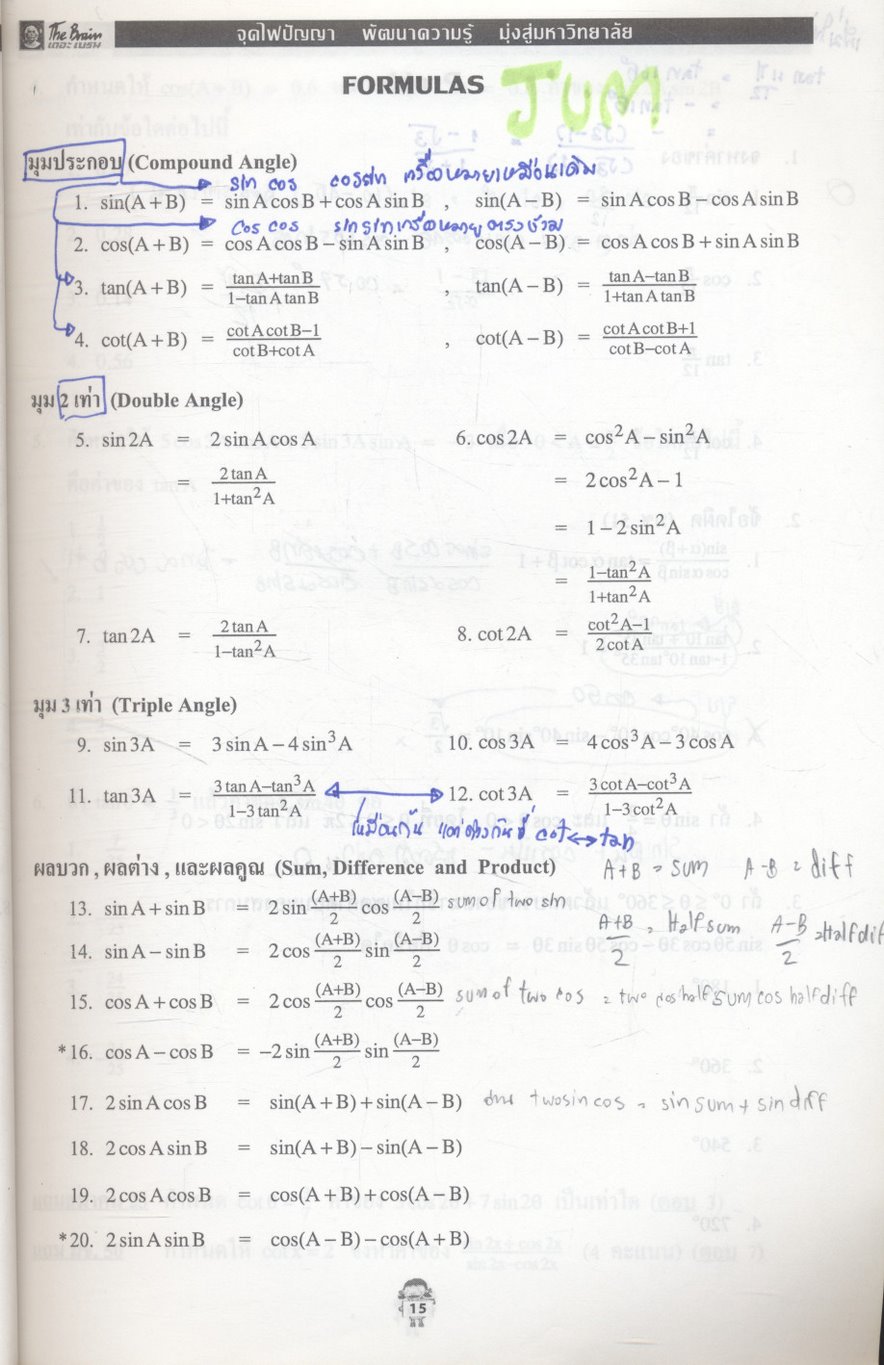 The Brain เดอะเบรน จุดไฟปัญญา พัฒนาความรู้ มุ่งสู่มหาวิทยาลัย
FORMULAS
SUM
มุมประกอบ (Compound Angle)
sin cos cos sin เครื่องหมายเหมือนเดิม
1. sin(A+B) = sin A cos B + cos A sin B , sin(A−B) = sin A cos B − cos A sin B
cos cos sin sin เครื่องหมายตรงข้าม
2. cos(A+B) = cos A cos B − sin A sin B , cos(A−B) = cos A cos B + sin A sin B
3. tan(A+B) = (tan A+tan B)/(1−tan A tan B) , tan(A−B) = (tan A−tan B)/(1+tan A tan B)
4. cot(A+B) = (cot A cot B−1)/(cot B+cot A) , cot(A−B) = (cot A cot B+1)/(cot B−cot A)
มุม 2 เท่า (Double Angle)
5. sin 2A = 2 sin A cos A 6. cos 2A = cos²A − sin²A
= 2 tan A/(1+tan²A) = 2 cos²A − 1
= 1 − 2 sin²A
= (1−tan²A)/(1+tan²A)
7. tan 2A = 2 tan A/(1−tan²A) 8. cot 2A = (cot²A−1)/(2 cot A)
มุม 3 เท่า (Triple Angle)
9. sin 3A = 3 sin A − 4 sin³A 10. cos 3A = 4 cos³A − 3 cos A
11. tan 3A = (3 tan A−tan³A)/(1−3 tan²A) 12. cot 3A = (3 cot A−cot³A)/(1−3 cot²A)
เหมือนกัน แต่ต่างกันที่ cot ↔ tan
ผลบวก , ผลต่าง , และผลคูณ (Sum, Difference and Product) A+B = sum A-B = diff
13. sin A + sin B = 2 sin (A+B)/2 cos (A−B)/2 sum of two sin
A+B/2 = Half sum A-B/2 = Half dif
14. sin A − sin B = 2 cos (A+B)/2 sin (A−B)/2
15. cos A + cos B = 2 cos (A+B)/2 cos (A−B)/2 sum of two cos = two cos half sum cos half diff
*16. cos A − cos B = −2 sin (A+B)/2 sin (A−B)/2
17. 2 sin A cos B = sin(A+B) + sin(A−B) two sin cos = sin sum + sin diff
18. 2 cos A sin B = sin(A+B) − sin(A−B)
19. 2 cos A cos B = cos(A+B) + cos(A−B)
*20. 2 sin A sin B = cos(A−B) − cos(A+B)
15